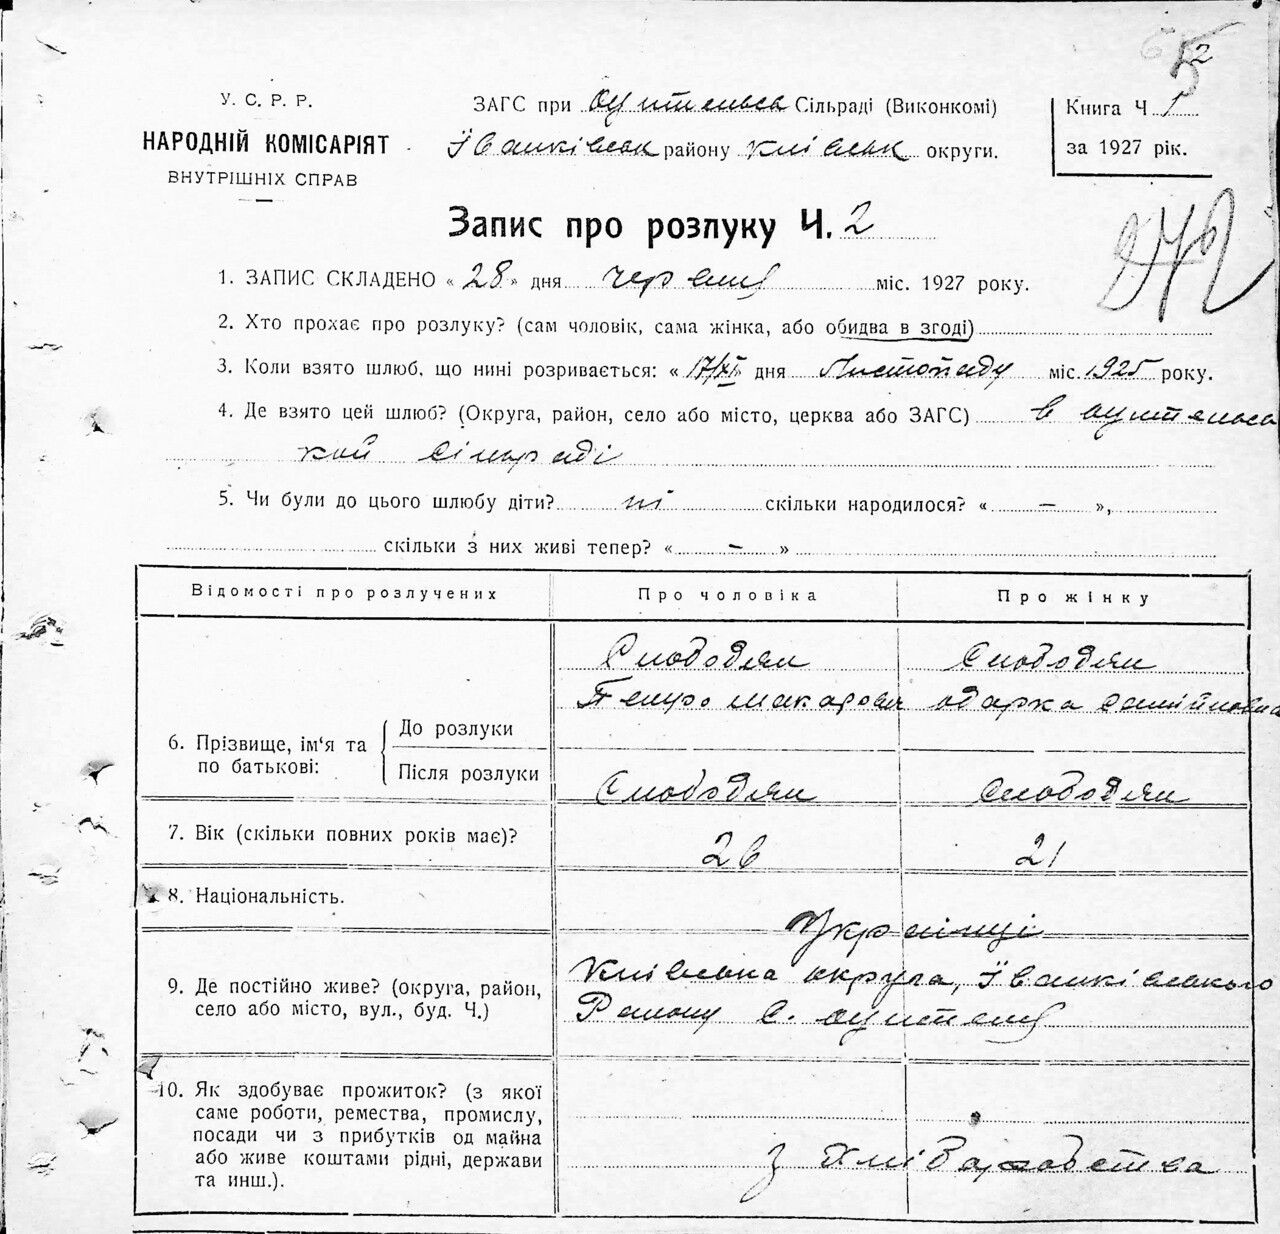 5 2
У. С. Р. Р.
НАРОДНІЙ КОМІСАРІЯТ
ВНУТРІШНІХ СПРАВ
ЗАГС при Сільраді (Виконкомі)
Їванківськ району Київськ округи.
Книга Ч. 1
за 1927 рік.
Запис про розлуку Ч. 2
1. ЗАПИС СКЛАДЕНО « 28 » дня червня міс. 1927 року.
2. Хто прохає про розлуку? (сам чоловік, сама жінка, або обидва в згоді)
3. Коли взято шлюб, що нині розривається: « 17/XI » дня Листопаду міс. 1925 року.
4. Де взято цей шлюб? (Округа, район, село або місто, церква або ЗАГС) в
кой сільраді
5. Чи були до цього шлюбу діти? ні скільки народилося? « – »,
скільки з них живі тепер? « – »
Відомості про розлучених
Про чоловіка
Про жінку
6. Прізвище, ім'я та по батькові:
До розлуки
Після розлуки
Слободян
Петро Макаров
Слободян
Одарка Самійловна
Слободян
Слободян
7. Вік (скільки повних років має)?
26
21
8. Національність.
Українці
9. Де постійно живе? (округа, район,
село або місто, вул., буд. Ч.)
Київська округа, Їванківського
Району с.
10. Як здобуває прожиток? (з якої
саме роботи, ремества, промислу,
посади чи з прибутків од майна
або живе коштами рідні, держави
та инш.).
з хліборобства